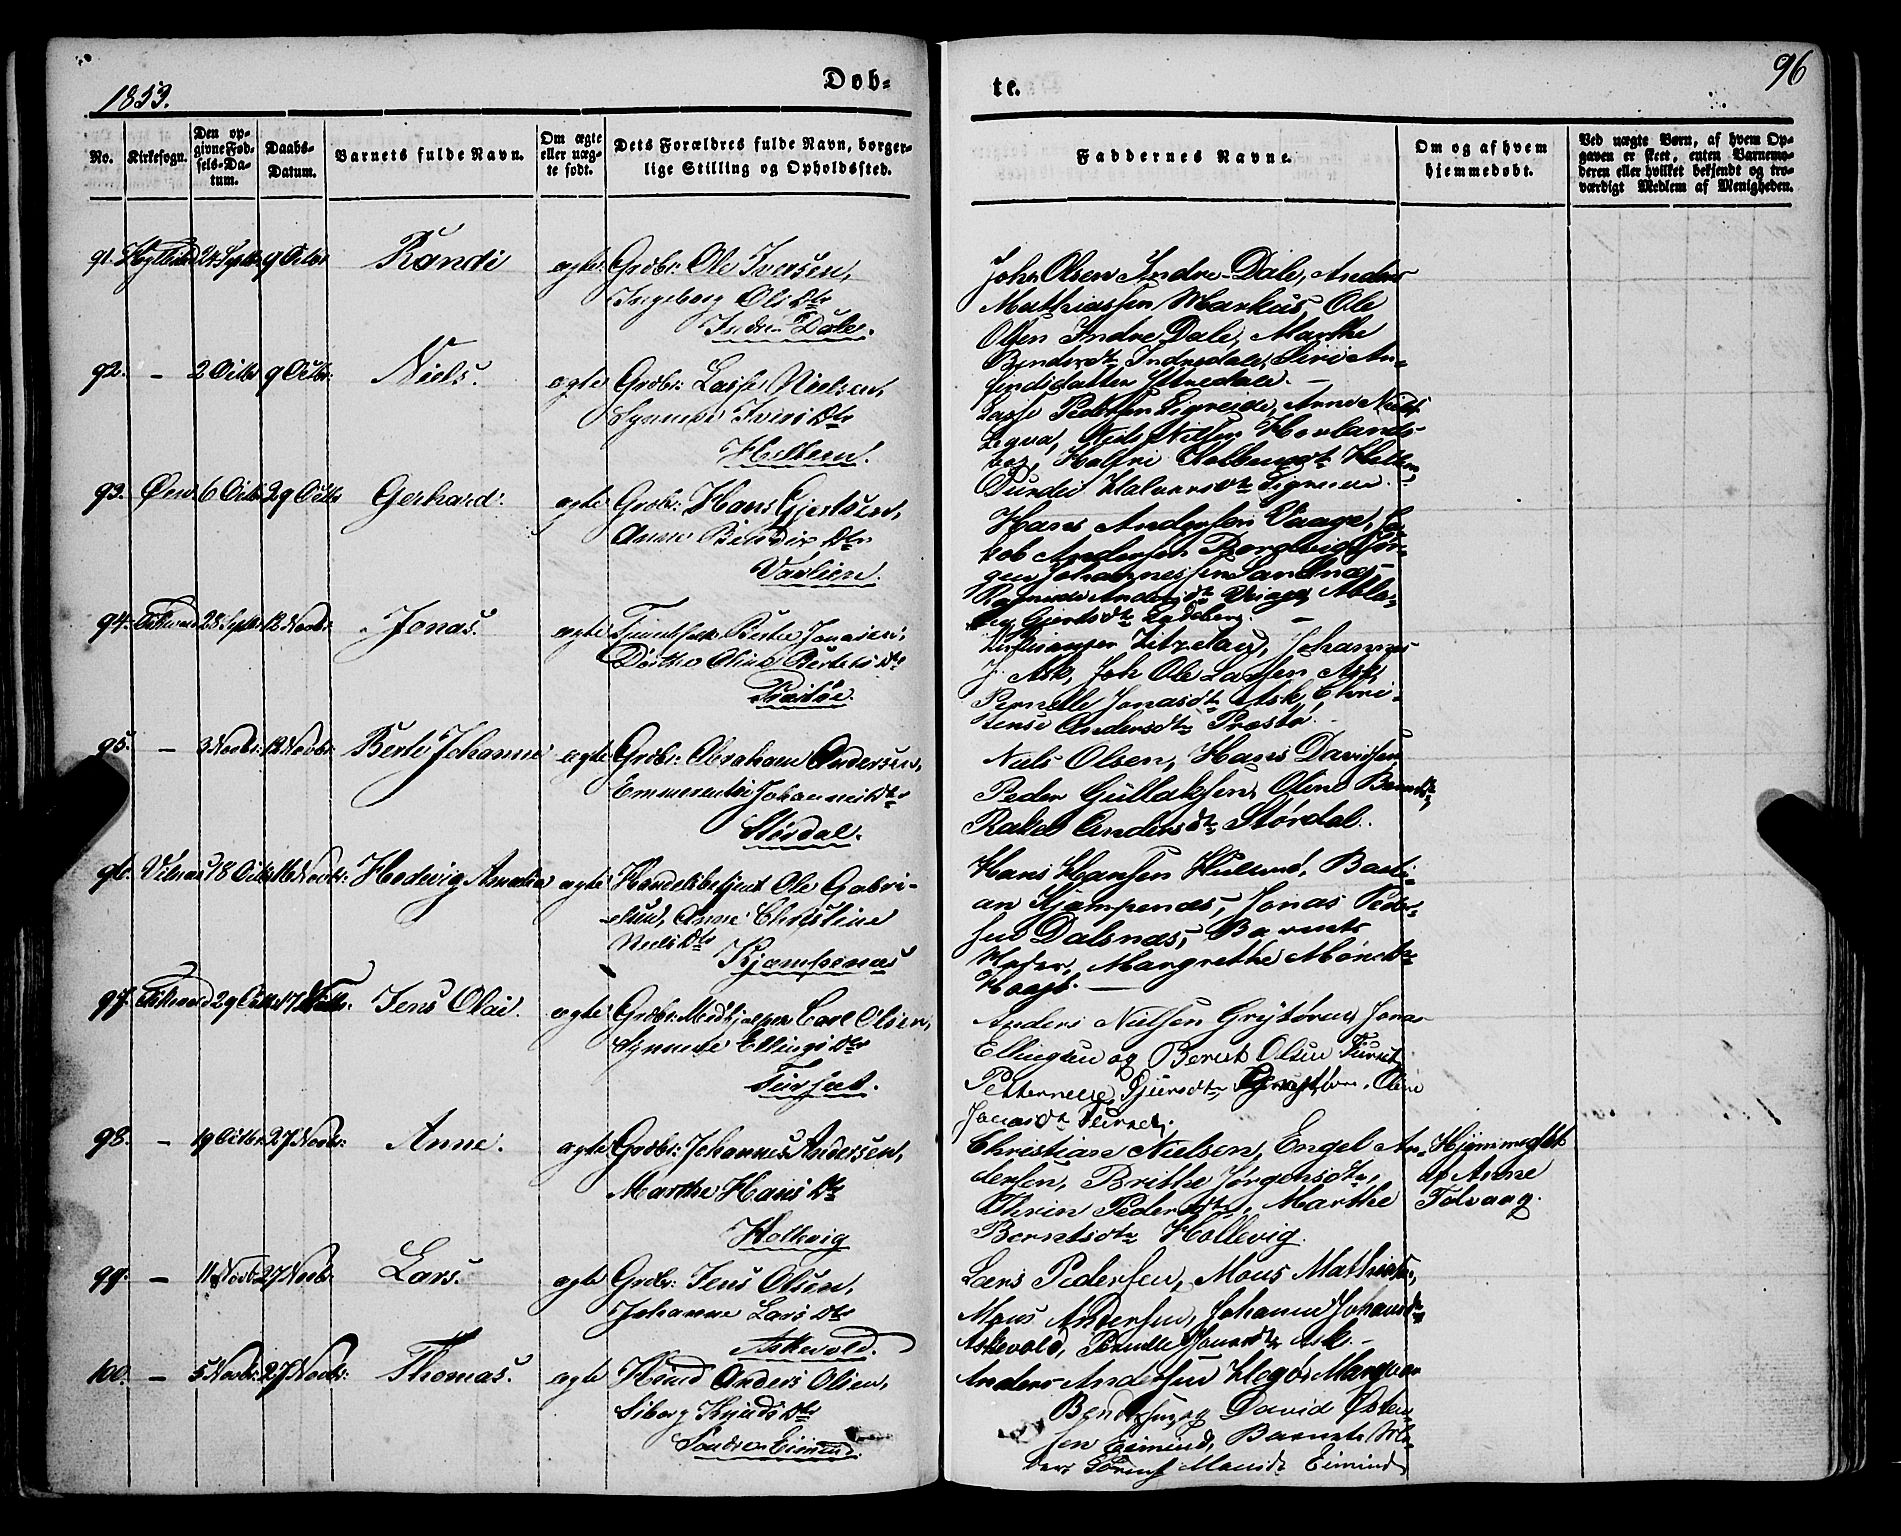 1853.
Dob-
te.
96
No.
Kirkesogn.
Den op-
givne Fød-
sels-Da-
tum.
Daabs-
Datum.
Barnets fulde Navn.
Om ægte
eller uæg-
te født.
Dets Forældres fulde Navn, borger-
lige Stilling og Opholdssted.
Faddernes Navne.
Om og af hvem
hjemmedøbt.
Ved uægte Børn, af hvem Op-
gaven er skeet, enten Barnemo-
deren eller hvilket bekjendt og tro-
værdigt Medlem af Menigheden.
91. 24 Septbr 9 Octbr Randi ægte Grdbr: Ole Iversen,
Ingeborg Ols Dtr
Indre Dale.
John Olsen Indre-Dale, Anders
Mathiassen Markus, Ole
Olsen Indre Dale, Marthe
Indredale, Siri An-
findsdatter Ittredale. —
92. — 2 Octbr 9 Octbr: Niels. ægte Grdbr: Lasse Nielsen,
Synneve Ivers Dtr
Hellem.
Lasse Pedersen Arne Niels
Niels Nilsen Hovlands-
93. Øen 6 Octbr 29 Octbr Gerhard: ægte Grdbr: Hans Gjertsen,
Anne Bendix Dtr
Vaslien.
Hans Andersen Vaage, Ja-
kob Andersen Jør-
gen Johannessen Sandnæs
Andersdtr Vaage, Able-
Gjertsdtr
94. Askevold 28 Septbr 12 Novbr. Jonas. ægte Bertel Jonasen,
Dorthe Olina Bertels Dtr
Præstøe.
Johannes
J. Ask, Joh Ole Larsen Ask,
Pernelle Jonasdtr Ask, Chri-
tense Andersdtr Præstø.
95. — 3 Novbr: 12 Novbr: Berte Johanne ægte Grdbr: Abraham Andersen,
Emmerentse Johannes Dtr
Størdal.
Niels Olsen, Hans Davidsen
Peder Gullaksen, Oline Berentsdtr
Rakel Andersdtr Størdal.
96. Vilnæs 18 Octbr 16 Novbr: Hedevig Amalia ægte Handelsbetjent Ole Gabri-
elsen, Anne Christine
Niels Dtr
Kjempenæs
Hans Hansen Basti-
an Kjempenæs, Jonas Peder-
sen Dalsnæs, Barnets
Moder, Margrethe
97. Askevold 29 Octbr 17 Novbr: Jens Olai. ægte Grdbr: Medhjælper Carl Olsen,
Synneve Ellings Dtr
Fursæt.
Anders Nielsen Grytøren Jonas
Ellingsen og Bernt Olsen Furset
Petternelle Oline
Jonasdtr Furset.
98. — 19 Octbr 27 Novbr: Anne. ægte Grdbr: Johannes Andersen,
Marthe Hans Dtr
Hollevig
Christian Nielsen, Engel An-
dersen, Brithe Jørgensdtr,
Pedersdtr, Marthe
Berntsdtr Hollevig.
Hjemmedøbt
af Anne
Tolvaag.
99. — 11 Novbr: 27 Novbr. Lars. ægte Grdbr: Jens Olsen,
Johanne Lars Dtr
Askevold.
Lars Pedersen, Mons Mathias
Mons Andersen, Johanne Johansdtr
Askevold, Pernille Jonasdtr Ask. —
100. — 5 Novbr: 27 Novbr: Thomas. ægte Huusmd Anders Olsen,
Siborg Knuds Dtr
Anders Andersen
Bendixsen og David Østen-
sen Eimind, Barnets Mo-
der, Monsdtr Eimind